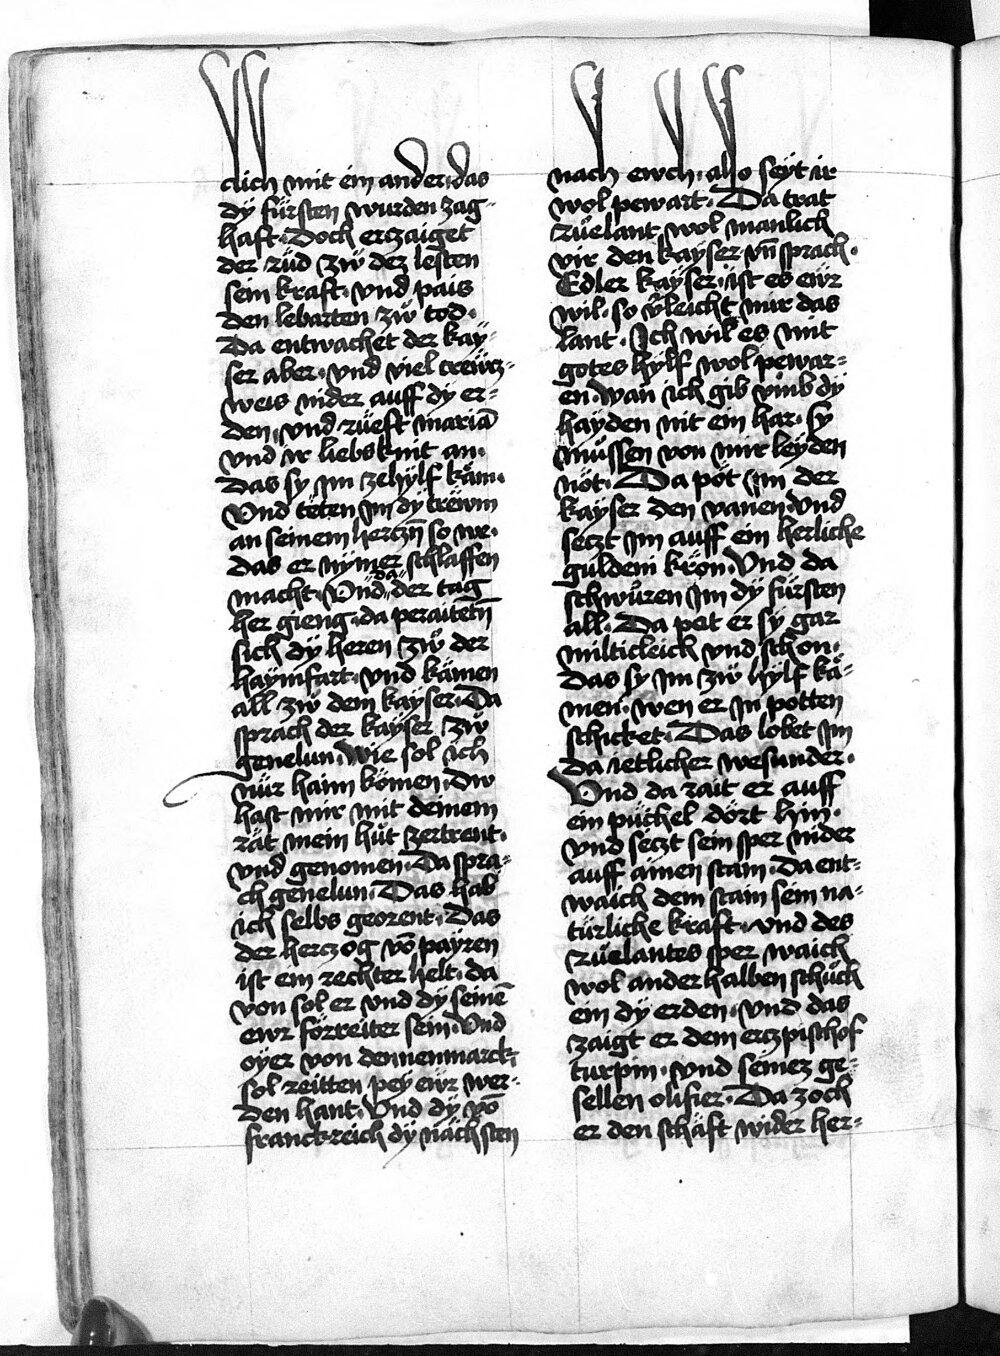 clich mit ein ander, das
dÿ fürsten wurden zag-
haft. Doch erczaiget
der rüd zŵ der lesten
sein kraft. vnd pais
den lebarten zŵ tod.
Da entwachet der kaÿ-
ser aber. vnd viel crewcz-
weis nider auff dÿ er-
den, vnd rüeft mariā
vnd ir liebs kint an.
Das sy im zehÿlf käm.
Vnd teten im dÿ trëwm
an seinem herczn̄ so we.
das er nÿmer schlaffen
macht. Vnd da der tag
her gieng. da peraitetn̄
sich dÿ heren zŵ der
haÿmfart. vnd kämen
all zŵ dem kaÿser. Da
sprach der kaÿser zŵ
genelun. Wie sol ich
nür haim kömen. Dw
hast mir mit deinem
rät mein hüt zertrent.
vnd genomen. Da spra-
ch genelun. Das hab
ich selbs georent. Das
der herczog vō paÿren
ist ein rechter helt. da
von sol er vnd dÿ seinē
ewr förreiter sein. Vnd
oÿer von dennenmarck,
sol reitten peÿ ewr wer-
den hant. Vnd dÿ vō
franckreich dÿ nächsten
nach ewch. also seÿt ir
wol pewart. Da trat
rüelant wol manlich
vir den kayser vn̄ sprach.
Edler kaÿser. ist es ewr
wil. so v̈leicht mir das
lant. Ich wil es mit
gotes hÿlf wol pewar-
en. wan ich gib vmb dÿ
hayden nit ein har. sÿ
müssen von mir leÿden
nöt. Da pöt im der
kaÿser den vanen. Vnd
seczt im auff ein herliche
guldein krön. Vnd da
schwüren im dÿ fürsten
all. Da pet er sÿ gar
milticleich vnd schon.
Das sy im zŵ hÿlf kä-
men. wen er in potten
schicket. Das lobet im
da ietlicher wesunder.
Vnd da rait er auff
ein püchel dört hin.
vnd seczt sein sper nider
auff ainen stain. Da ent-
waich dem stain sein na-
türliche kraft. vnd des
rüelantes sper waich
wol anderhalben schüch
ein dÿ erden. vnd das
zaigt er dem erczpischof
turpin. vnd seinez ge-
sellen olifier. Da zoch
er den schäft wider her-